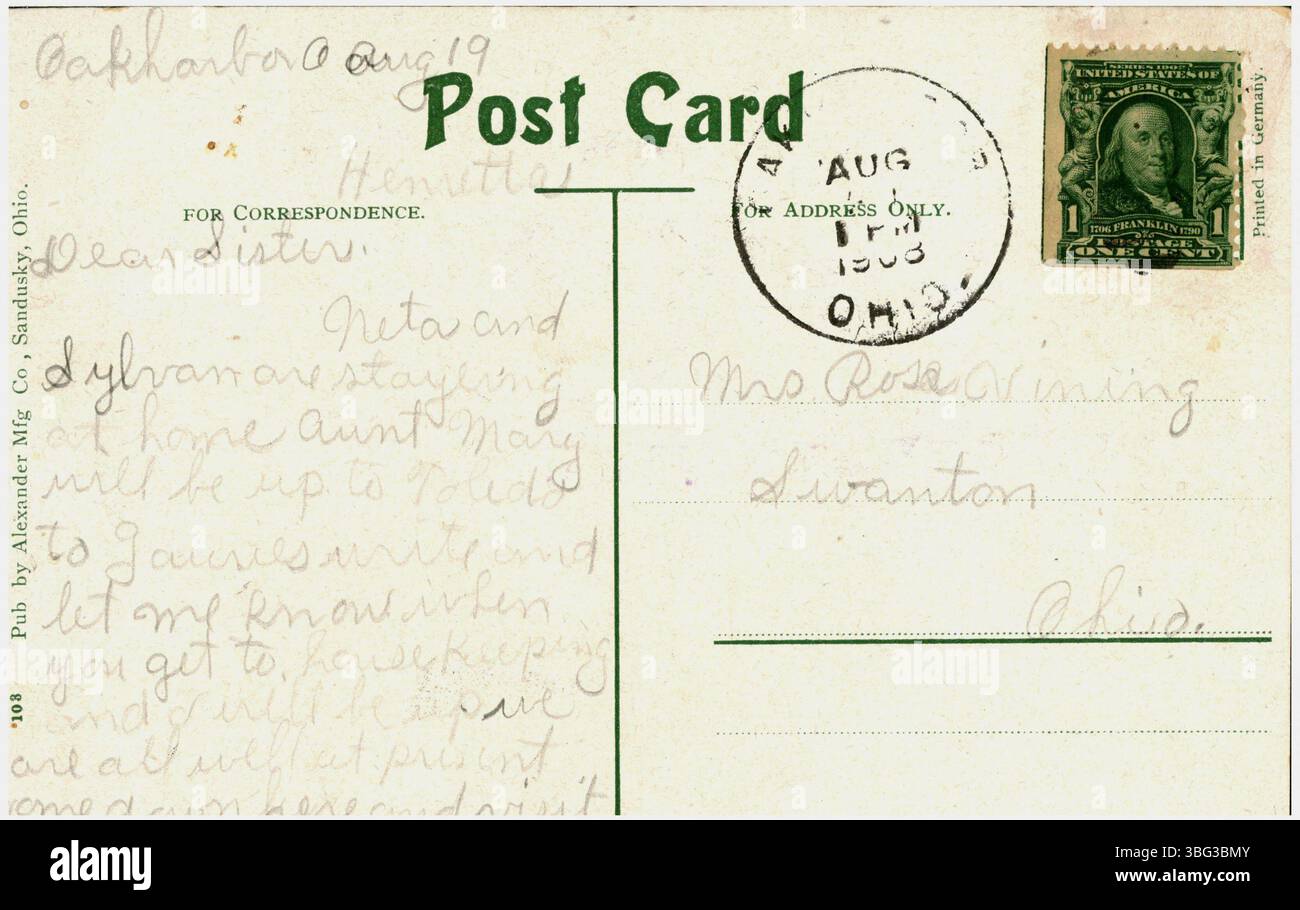 Oakharbor O Aug 19
Post Card
Henretta
FOR CORRESPONDENCE.
FOR ADDRESS ONLY.
Dear Sister.
Neta and
Sylvan are stayering
at home Aunt Mary
will be up to Toledo
to write and
let me know when
you get to housekeeping
and I will be up we
are all well at present
come down here and visit
Pub by Alexander Mfg Co., Sandusky, Ohio.
108
AUG
1 PM
1908
OHIO.
SERIES 1902
UNITED STATES OF
AMERICA
1 1
1706 FRANKLIN 1790
POSTAGE
ONE CENT
Printed in Germany.
Mrs Rosa Vining
Swanton
Ohio.
alamy
Image ID: 3BG3BMY
www.alamy.com